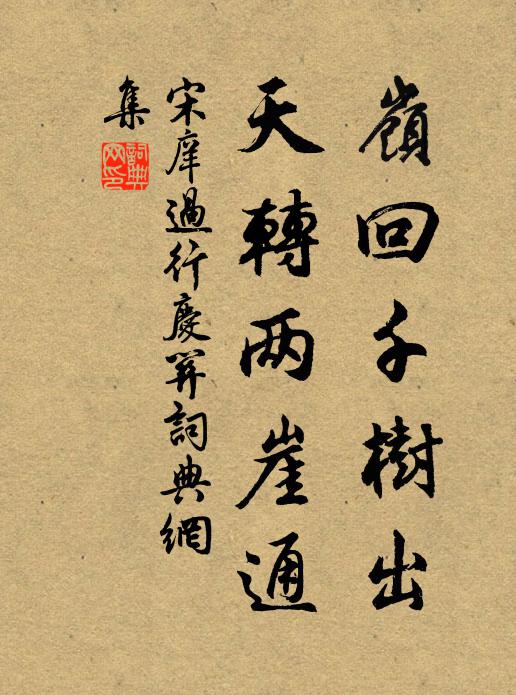 嶺回千樹出
天轉两崖通
宋庠過行慶關詞典網
集
詞典网印